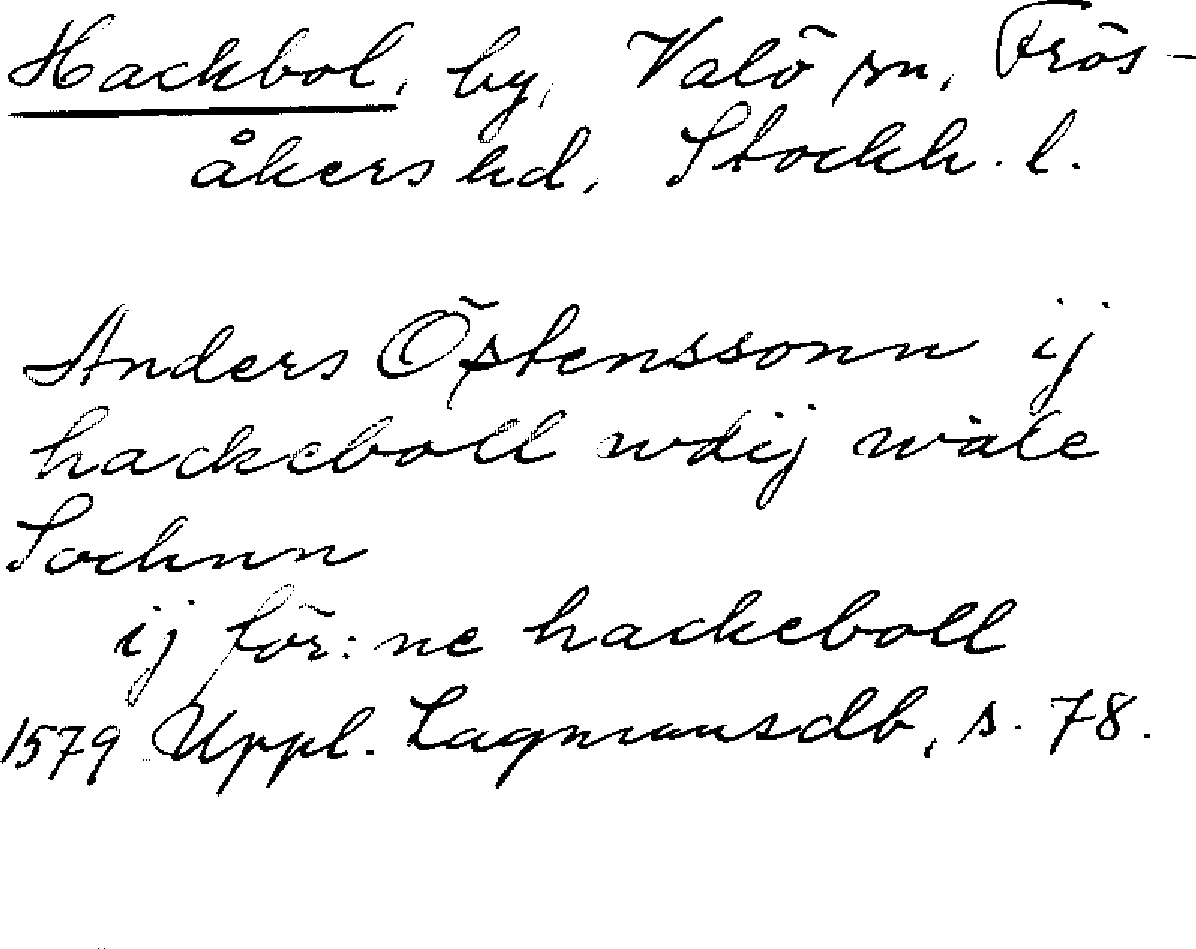 Hackbol, by, Valö sn, Frös-
åkers hd, Stockh. l.
Anders Östenssonn ij
hackeboll wdij wale
Sochnn
ij för:ne hackeboll
1579 Uppl. Lagmansdb, s. 78.